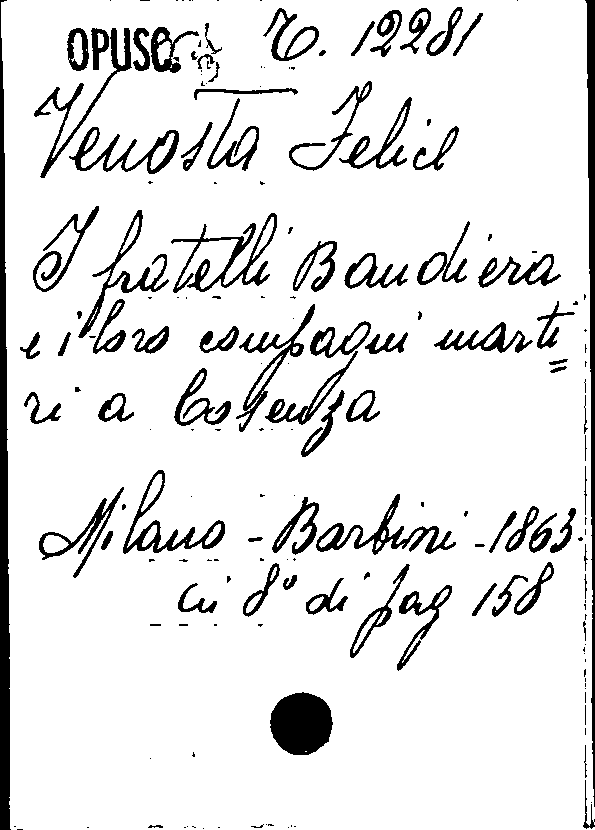 OPUSC. T. 12281
Venosta Felice
I fratelli Bandiera
e i loro compagni marti=
ri a Cosenza
Milano - Barbini - 1863.
in 8° di pag 158